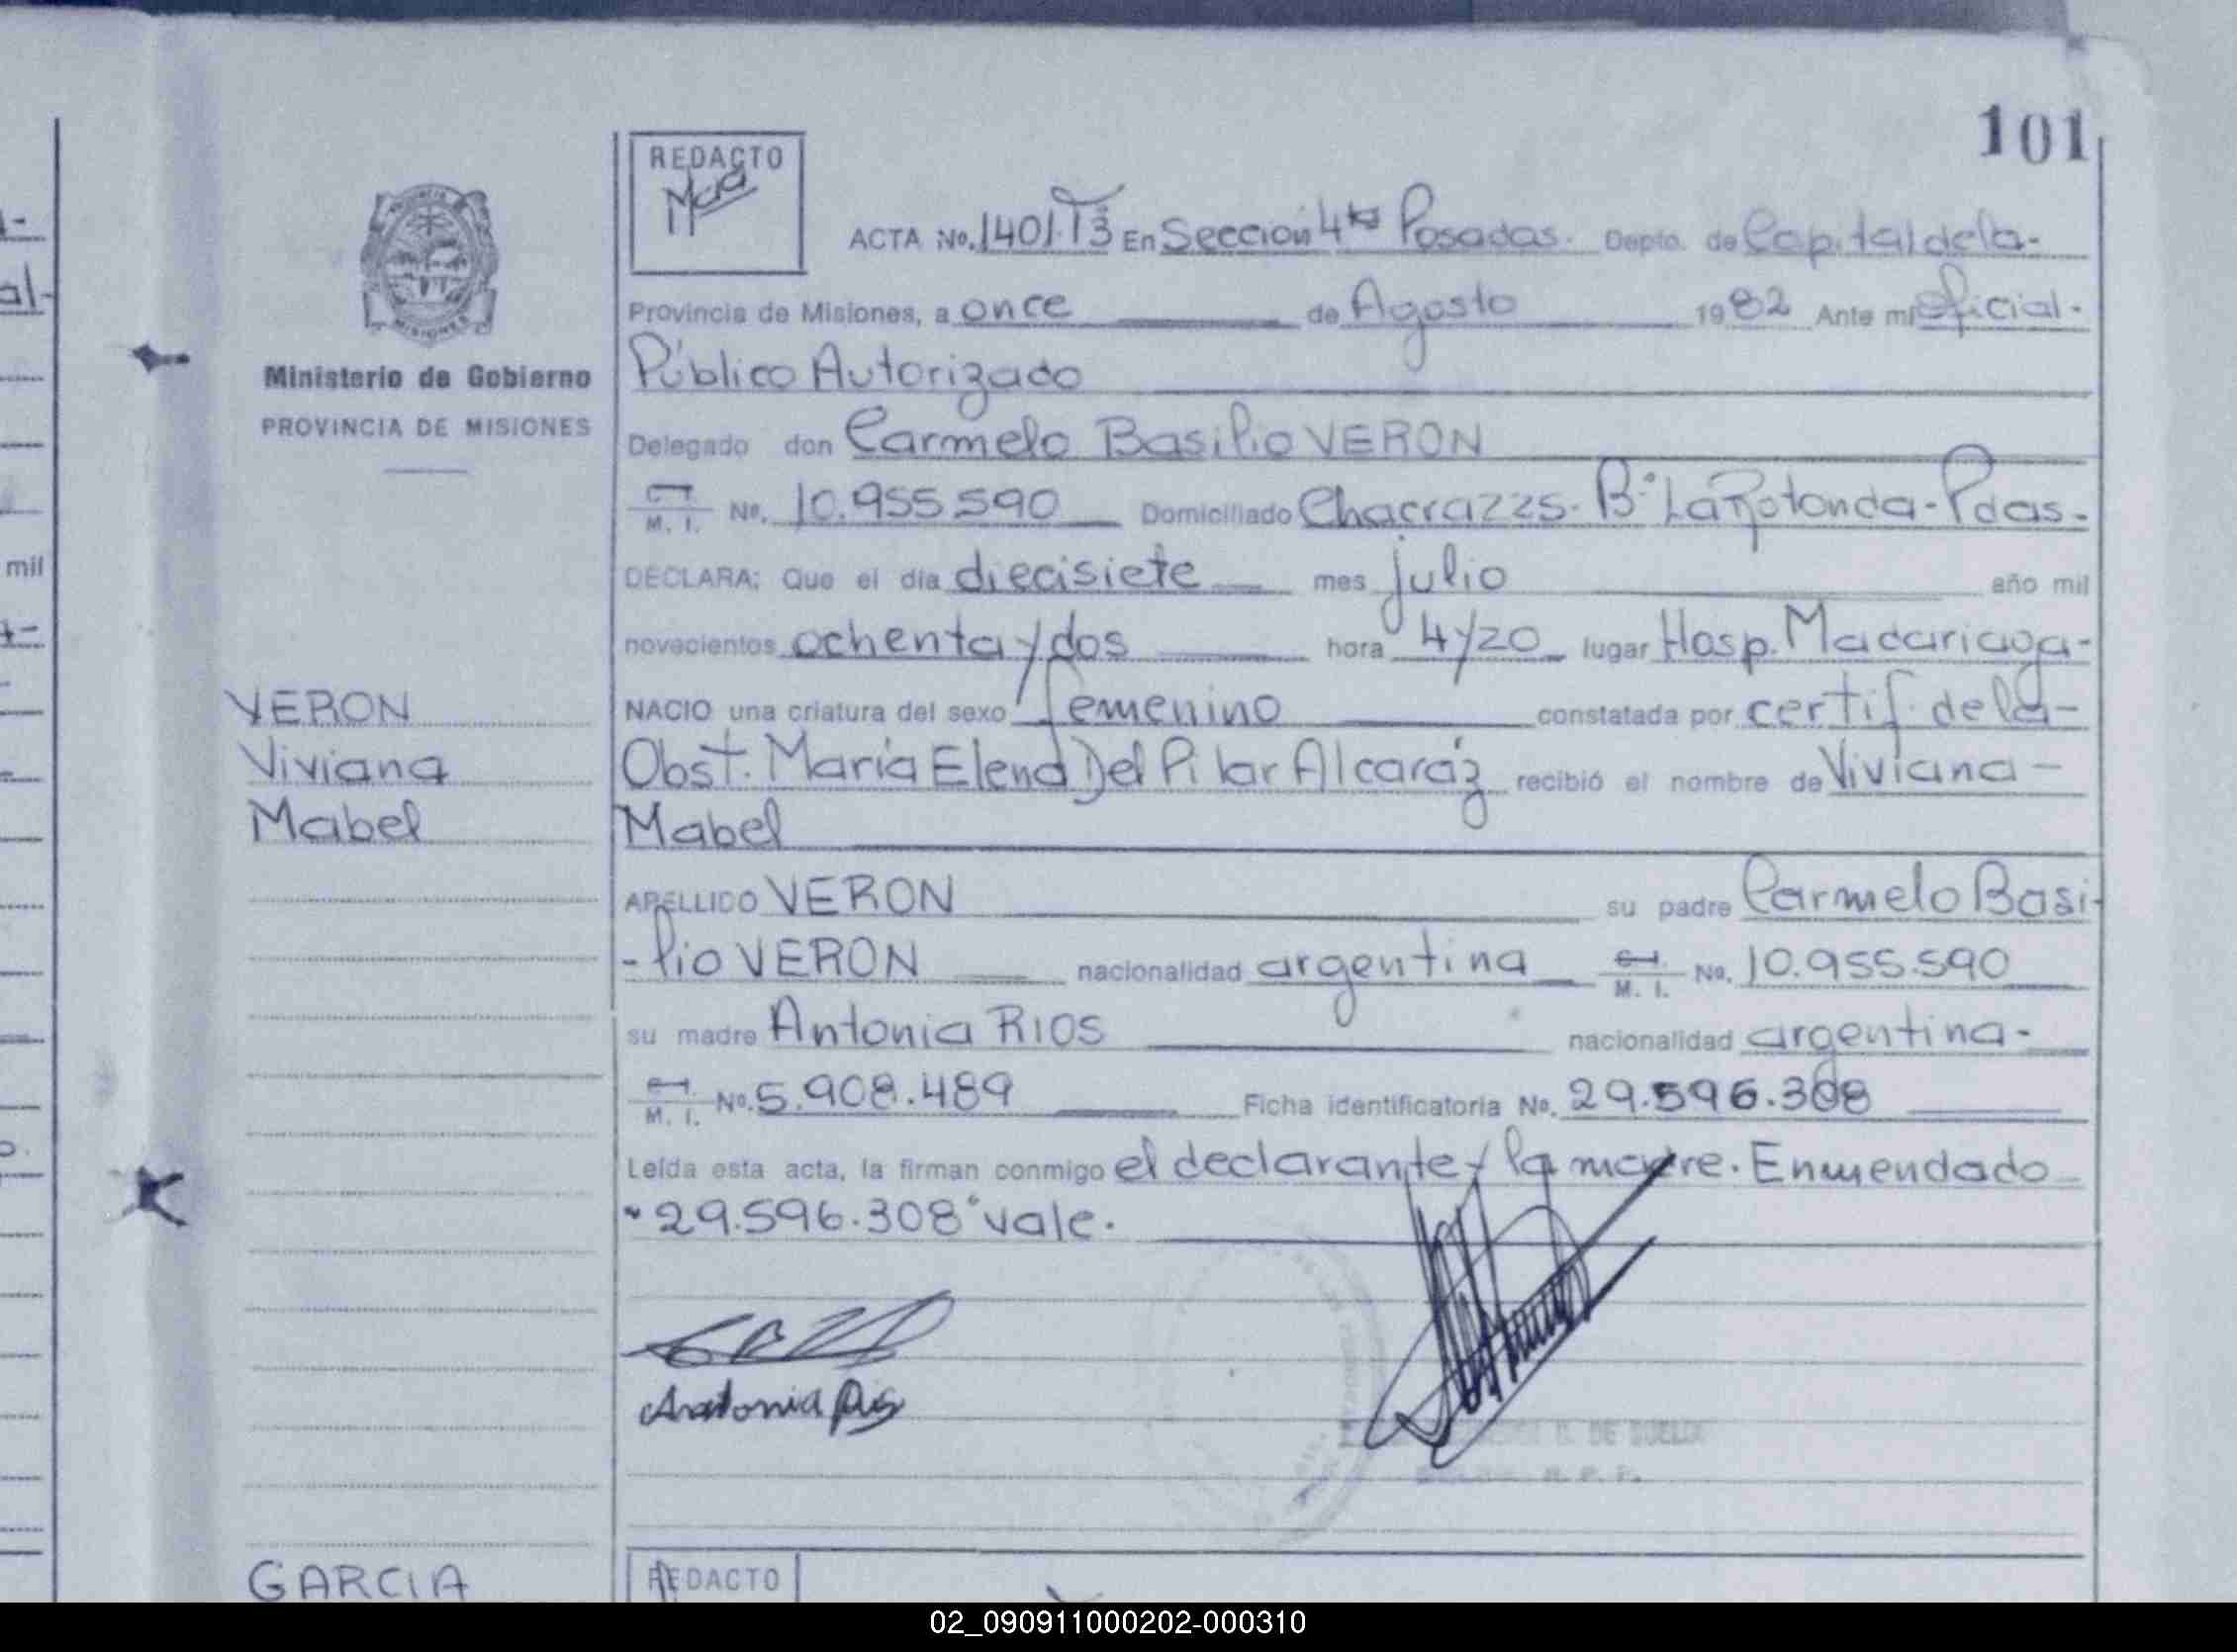 101
REDACTO
ACTA No. 1401. T3 En Sección 4ta Posadas. Depto. de Capital de la-
Provincia de Misiones, a once de Agosto 1982 Ante mi Oficial.
Público Autorizado
Ministerio de Gobierno
PROVINCIA DE MISIONES
Delegado don Carmelo Basilio VERON
M. I. No. 10.955.590 Domiciliado Chacra 225. B.º La Rotonda - Pdas.
DECLARA: Que el día diecisiete mes julio año mil
novecientos ochenta y dos hora 4/20 lugar Hosp. Madariaga-
NACIO una criatura del sexo femenino constatada por certif. de la-
Obst. María Elena Del Pilar Alcaráz recibió el nombre de Viviana-
Mabel
VERON
Viviana
Mabel
APELLIDO VERON su padre Carmelo Basi-
-lio VERON nacionalidad argentina M. I. No. 10.955.590
su madre Antonia RIOS nacionalidad argentina-
M. I. No. 5.908.489 Ficha identificatoria No. 29.596.308
Leída esta acta, la firman conmigo el declarante y la madre. Enmendado
"29.596.308" vale.
Antonia Rios
GARCIA
REDACTO
mil
al-
02_090911000202-000310